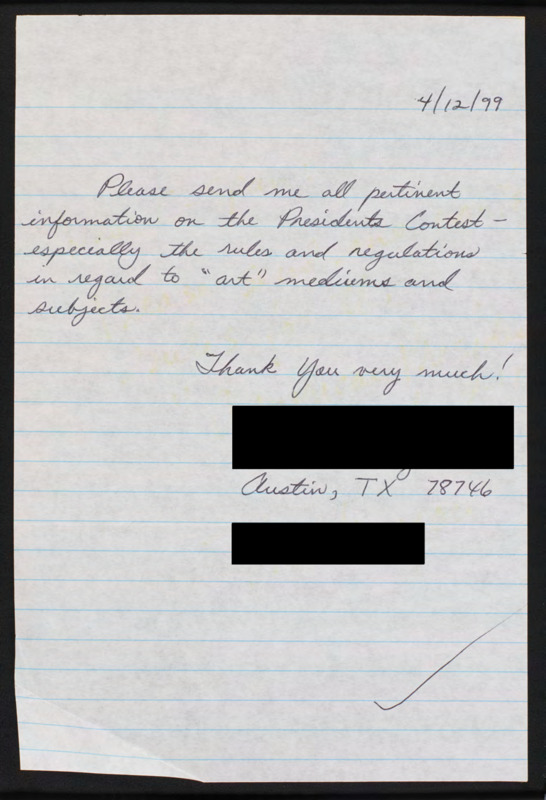 4/12/99
Please send me all pertinent
information on the Presidents Contest -
especially the rules and regulations
in regard to "art" mediums and
subjects.
Thank You very much!
Austin, TX 78746